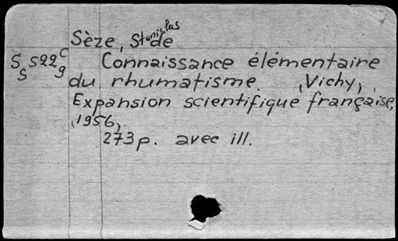 Sèze, Stanislas de
S S 522 c 9 Connaissance élémentaire
du rhumatisme. (Vichy,
Expansion scientifique française,
1956,
273 p. avec ill.